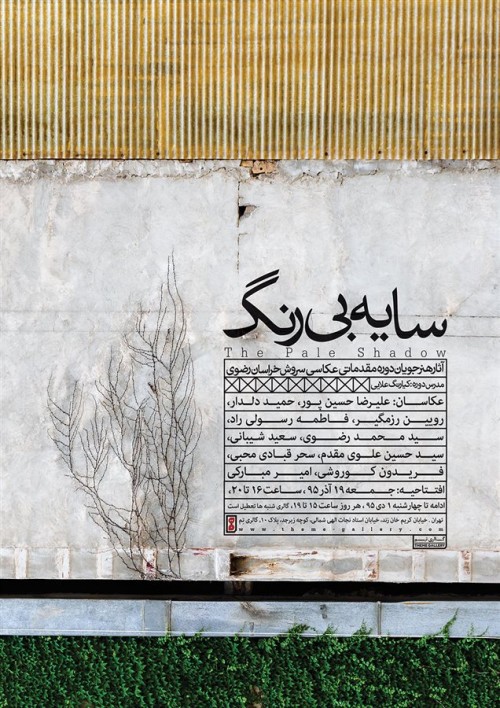 سایه بی رنگ
The Pale Shadow
آثار هنرجویان دوره مقدماتی عکاسی سروش خراسان رضوی
مدرس دوره: کیارنگ علایی
عکاسان: علیرضا حسین پور، حمید دلدار،
رویین رزمگیر، فاطمه رسولی راد،
سید محمد رضوی، سعید شیبانی،
سید حسین علوی مقدم، سحر قبادی محبی،
فریدون کوروشی، امیر مبارکی
افتتاحیه: جمعه ۱۹ آذر ۹۵، ساعت ۱۶ تا ۲۰،
ادامه تا چهارشنبه ۱ دی ۹۵، هر روز ساعت ۱۵ تا ۱۹، گالری شنبه ها تعطیل است
تهران. خیابان کریم خان زند، خیابان استاد نجات الهی شمالی، کوچه زبرجد، پلاک ۱۰، گالری تم
www.theme-gallery.com
گالری تم
THEME GALLERY